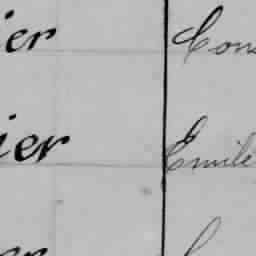 ier Cons
ier Emile
er